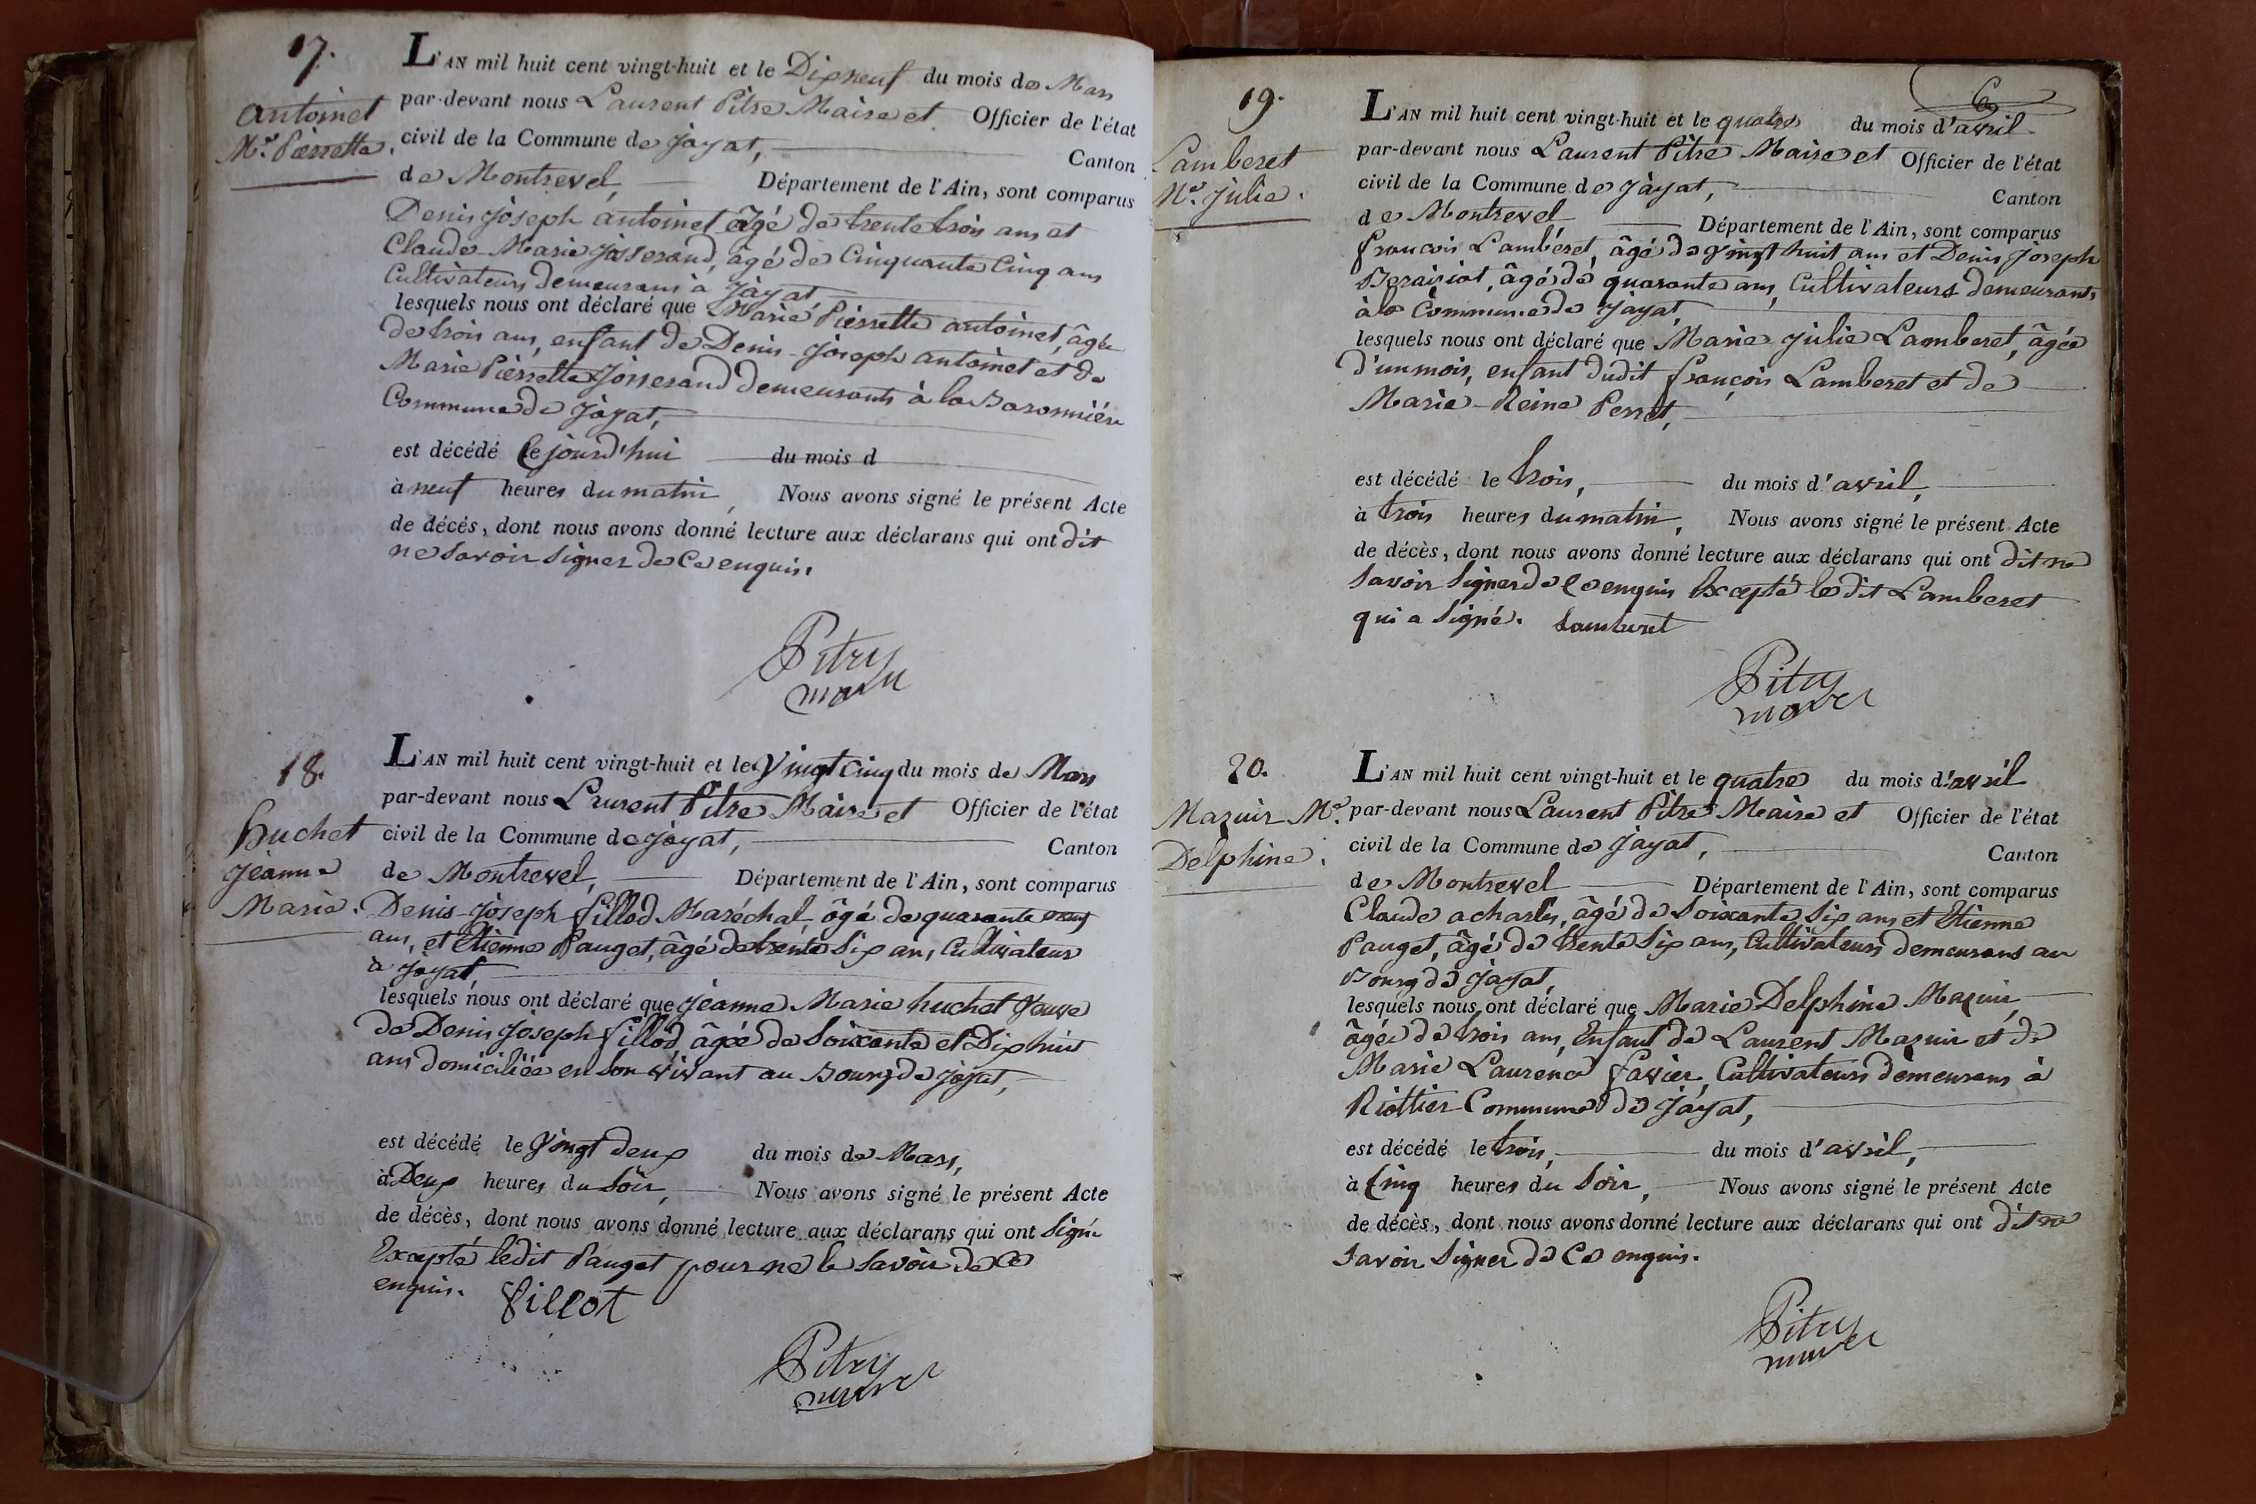 17.
Antoinet
Mie. Pierrette.
L'AN mil huit cent vingt-huit et le Dixneuf du mois de Mars
par-devant nous Laurent Pitre Maire et Officier de l'état
civil de la Commune de Jayat, Canton
de Montrevel, Département de l'Ain, sont comparus
Denis Joseph Antoinet âgé de trente trois ans et
Claude-Marie Josserand, âgé de Cinquante Cinq ans
Cultivateurs demeurans à Jayat
lesquels nous ont déclaré que Marie Pierrette Antoinet, âgée
de trois ans, enfant de Denis-Joseph Antoinet et de
Marie Pierrette Josserand demeurants à la Baronnière
Commune de Jayat,
est décédé le jourd'hui du mois d
à neuf heures du matin, Nous avons signé le présent Acte
de décès, dont nous avons donné lecture aux déclarans qui ont dit
ne savoir signer de Ce enquis.
Pitre
maire
18.
huchet
Jeanne
Marie.
L'AN mil huit cent vingt-huit et le Vingt Cinq du mois de Mars
par-devant nous Laurent Pitre Maire et Officier de l'état
civil de la Commune de Jayat, Canton
de Montrevel, Département de l'Ain, sont comparus
Denis-Joseph fillod Maréchal âgé de quarante neuf
ans, et Etienne Pauget, âgé de trente Six ans, Cultivateur
à Jayat
lesquels nous ont déclaré que Jeanne Marie huchet Veuve
de Denis Joseph fillod âgée de Soixante et Dix huit
ans domiciliée en son vivant au Bourg de Jayat,
est décédé le Vingt deux du mois de Mars,
à Deux heures du Soir, Nous avons signé le présent Acte
de décès, dont nous avons donné lecture aux déclarans qui ont Signé
Excepté ledit Pauget pour ne le savoir de Ce
enquis. fillot
Pitre
maire
19.
Lamberet
Mie. Julie.
L'AN mil huit cent vingt-huit et le quatre du mois d'avril
par-devant nous Laurent Pitre Maire et Officier de l'état
civil de la Commune de Jayat, Canton
de Montrevel Département de l'Ain, sont comparus
françois Lambéret, âgé de Vingt huit ans et Denis Joseph
âgé de quarante ans, Cultivateurs demeurants
à la Commune de Jayat,
lesquels nous ont déclaré que Marie Julie Lamberet, âgée
d'un mois, enfant dudit françois Lamberet et de
Marie-Reine Perret,
est décédé le trois, du mois d'avril,
à trois heures du matin, Nous avons signé le présent Acte
de décès, dont nous avons donné lecture aux déclarans qui ont dit ne
savoir signer de Ce enquis Excepté le dit Lamberet
qui a Signé. Lamberet
Pitre
maire
20.
Mazuir Mie.
Delphine.
L'AN mil huit cent vingt-huit et le quatre du mois d'avril
par-devant nous Laurent Pitre Maire et Officier de l'état
civil de la Commune de Jayat, Canton
de Montrevel Département de l'Ain, sont comparus
Claude acharles, âgé de Soixante Six ans et Etienne
Pauget, âgé de trente Six ans, Cultivateurs demeurans au
Bourg de Jayat,
lesquels nous ont déclaré que Marie Delphine Mazuir,
âgée de trois ans, Enfant de Laurent Mazuir et de
Marie Laurence favier, Cultivateurs demeurans à
Riottier Commune de Jayat,
est décédé le trois, du mois d'avril,
à Cinq heures du Soir, Nous avons signé le présent Acte
de décès, dont nous avons donné lecture aux déclarans qui ont dit ne
savoir Signer de Ce enquis.
Pitre
maire